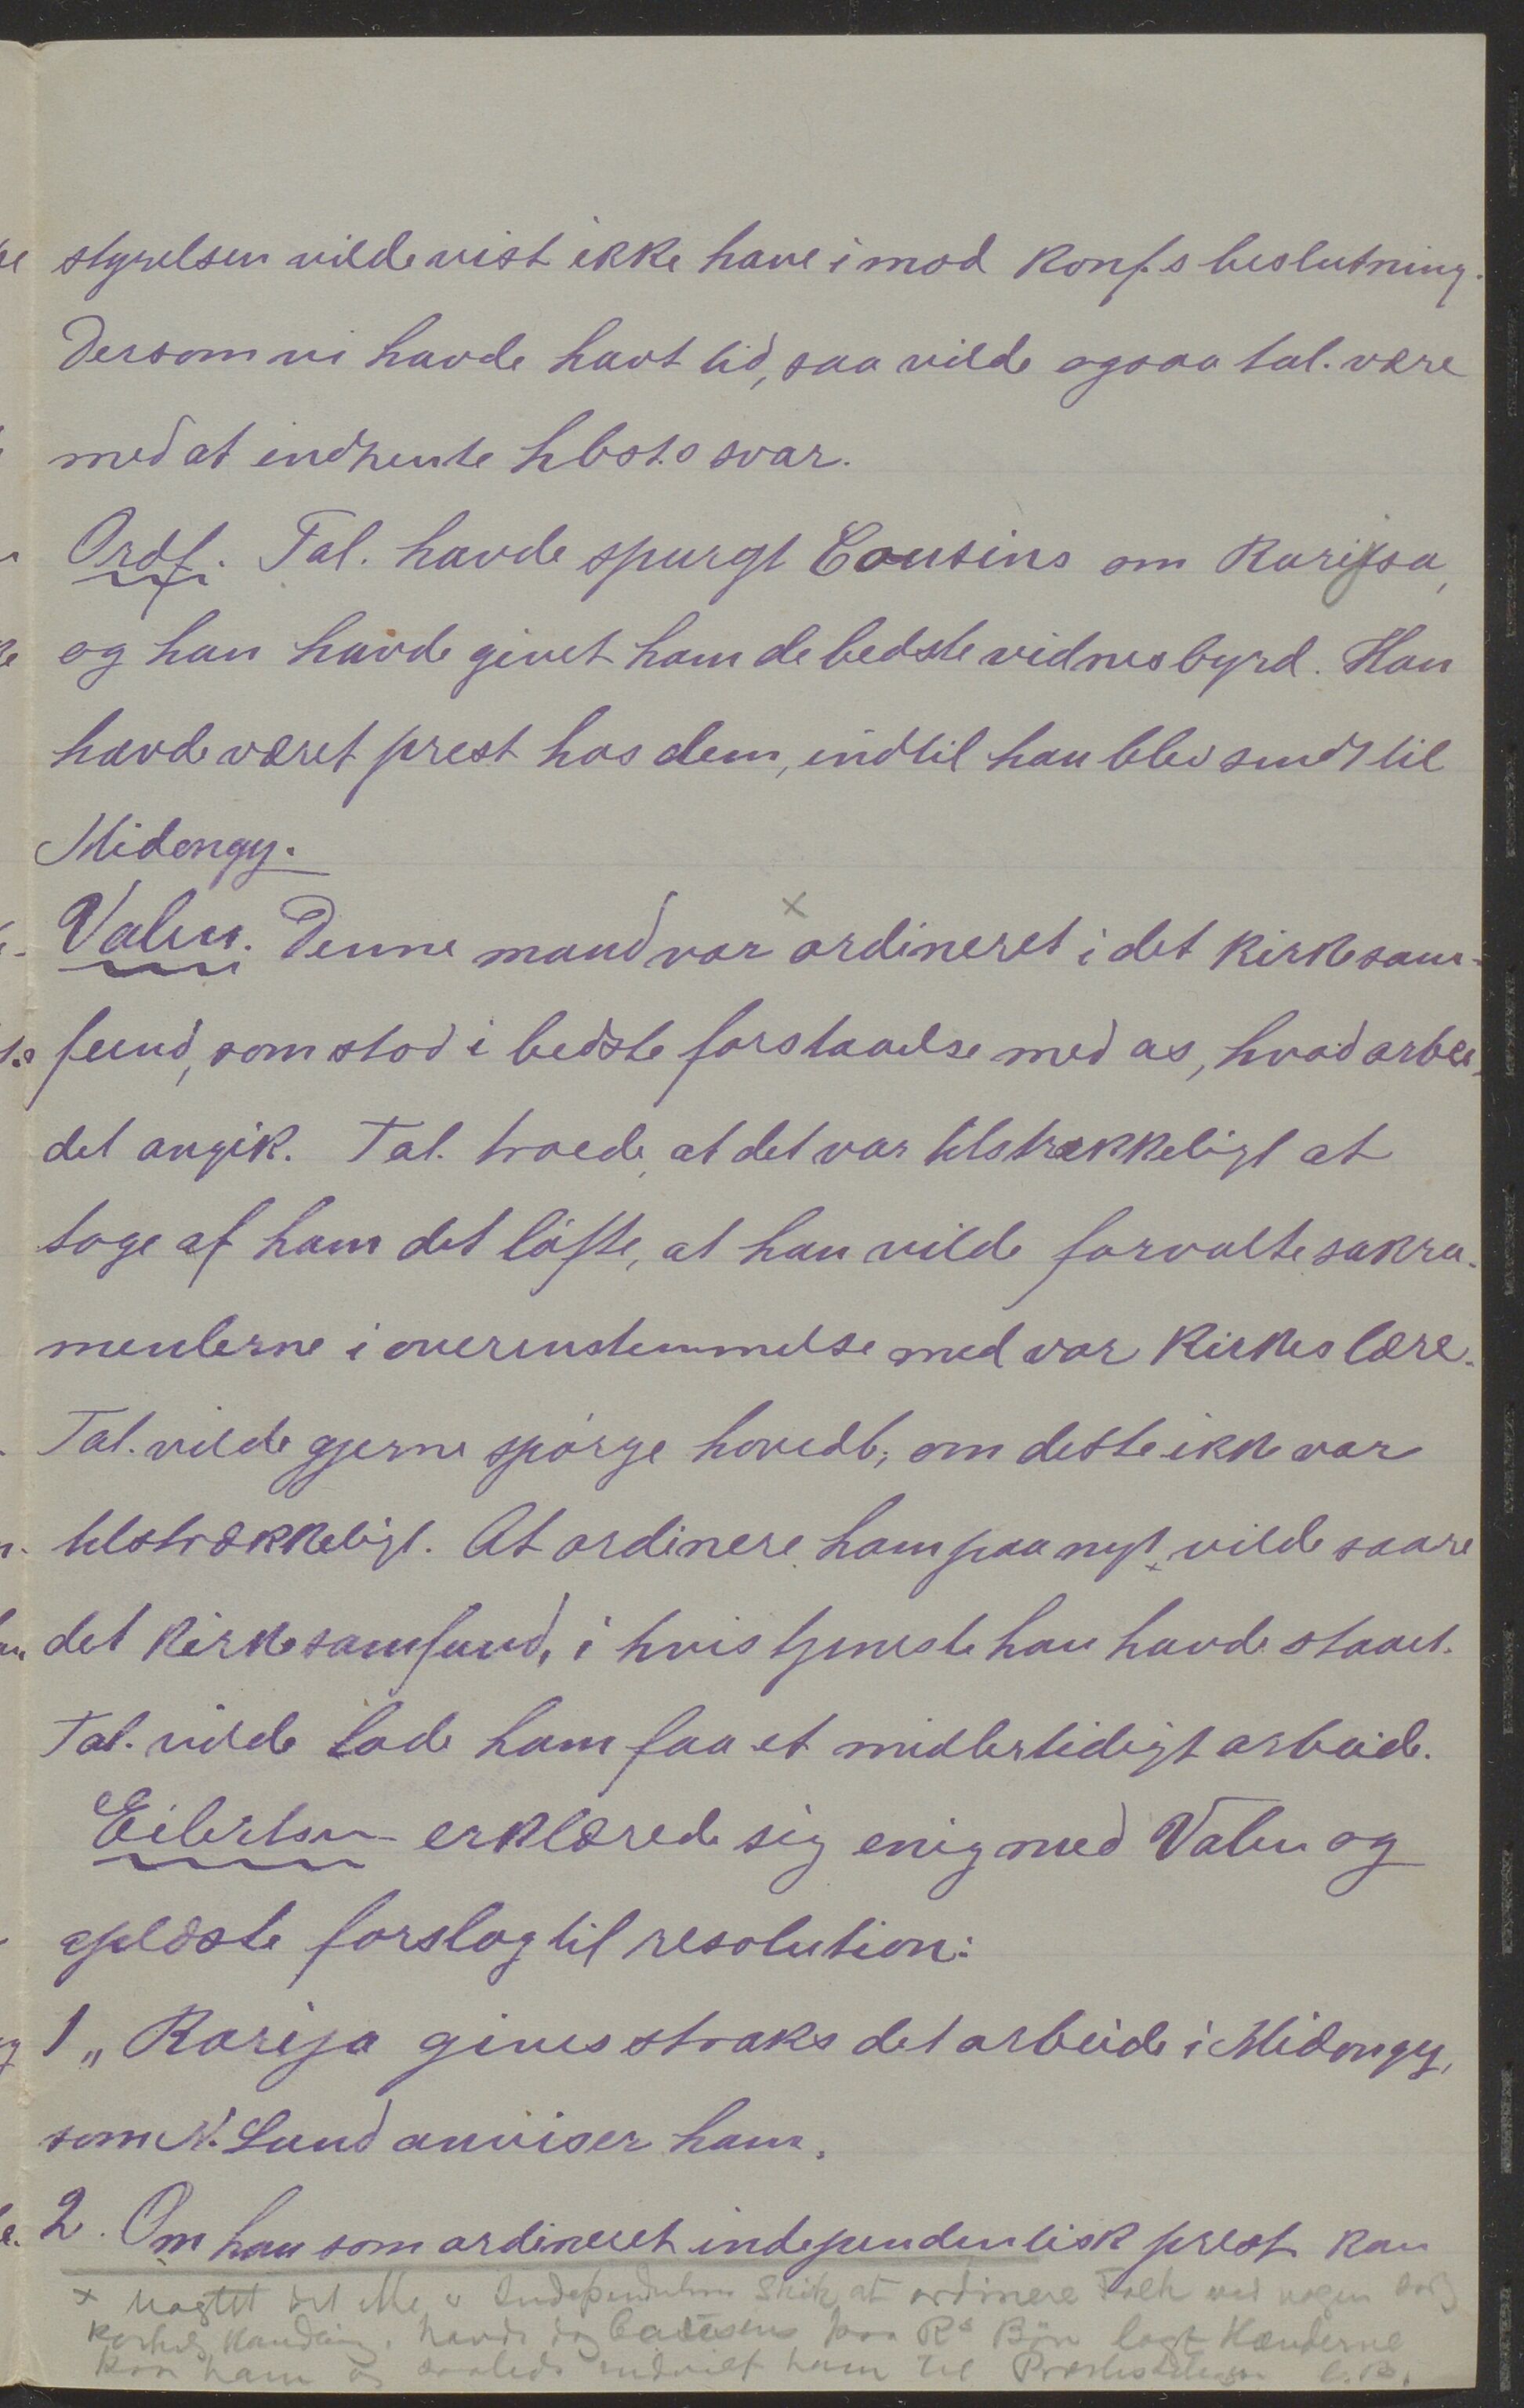 styrelsen vilde vist ikke have imod konf.s beslutning.
Dersom vi havde havt tid, saa vilde ogsaa tal. være
med at indhente hbst.s svar.
Ordf. Tal. havde spurgt Cousins om Rarija,
og han havde givet ham de bedste vidnesbyrd. Han
havde været prest hos dem, indtil han blev sendt til
Midongy.
Valen. Denne mand var x ordineret i det kirkesam-
fund, som stod i bedste forstaaelse med os, hvad arbei-
det angik. Tal. troede, at det var tilstrækkeligt at
tage af ham det løfte, at han vilde forvalte sakra-
menterne i overensstemmelse med vor kirkes lære.
Tal. vilde gjerne spørge hovedb., om dette ikke var
tilstrækkeligt. At ordinere ham paa nyt, vilde saare
det kirkesamfund, i hvis tjeneste han havde staaet.
Tal. vilde lade ham faa et midlertidigt arbeide.
Eilertsen erklærede sig enig med Valen og
oplæste forslag til resolution:
1 „Rarija gives straks det arbeide i Midongy,
som N. Lund anviser ham.
2. Om han som ordineret independentisk prest kan
x Uagtet det ikke er Independenternes Skik at ordinere Folk ved nogen
Handling, havde dog Cousins paa R's Bøn lagt Hænderne
paa ham og saaledes indviet ham til